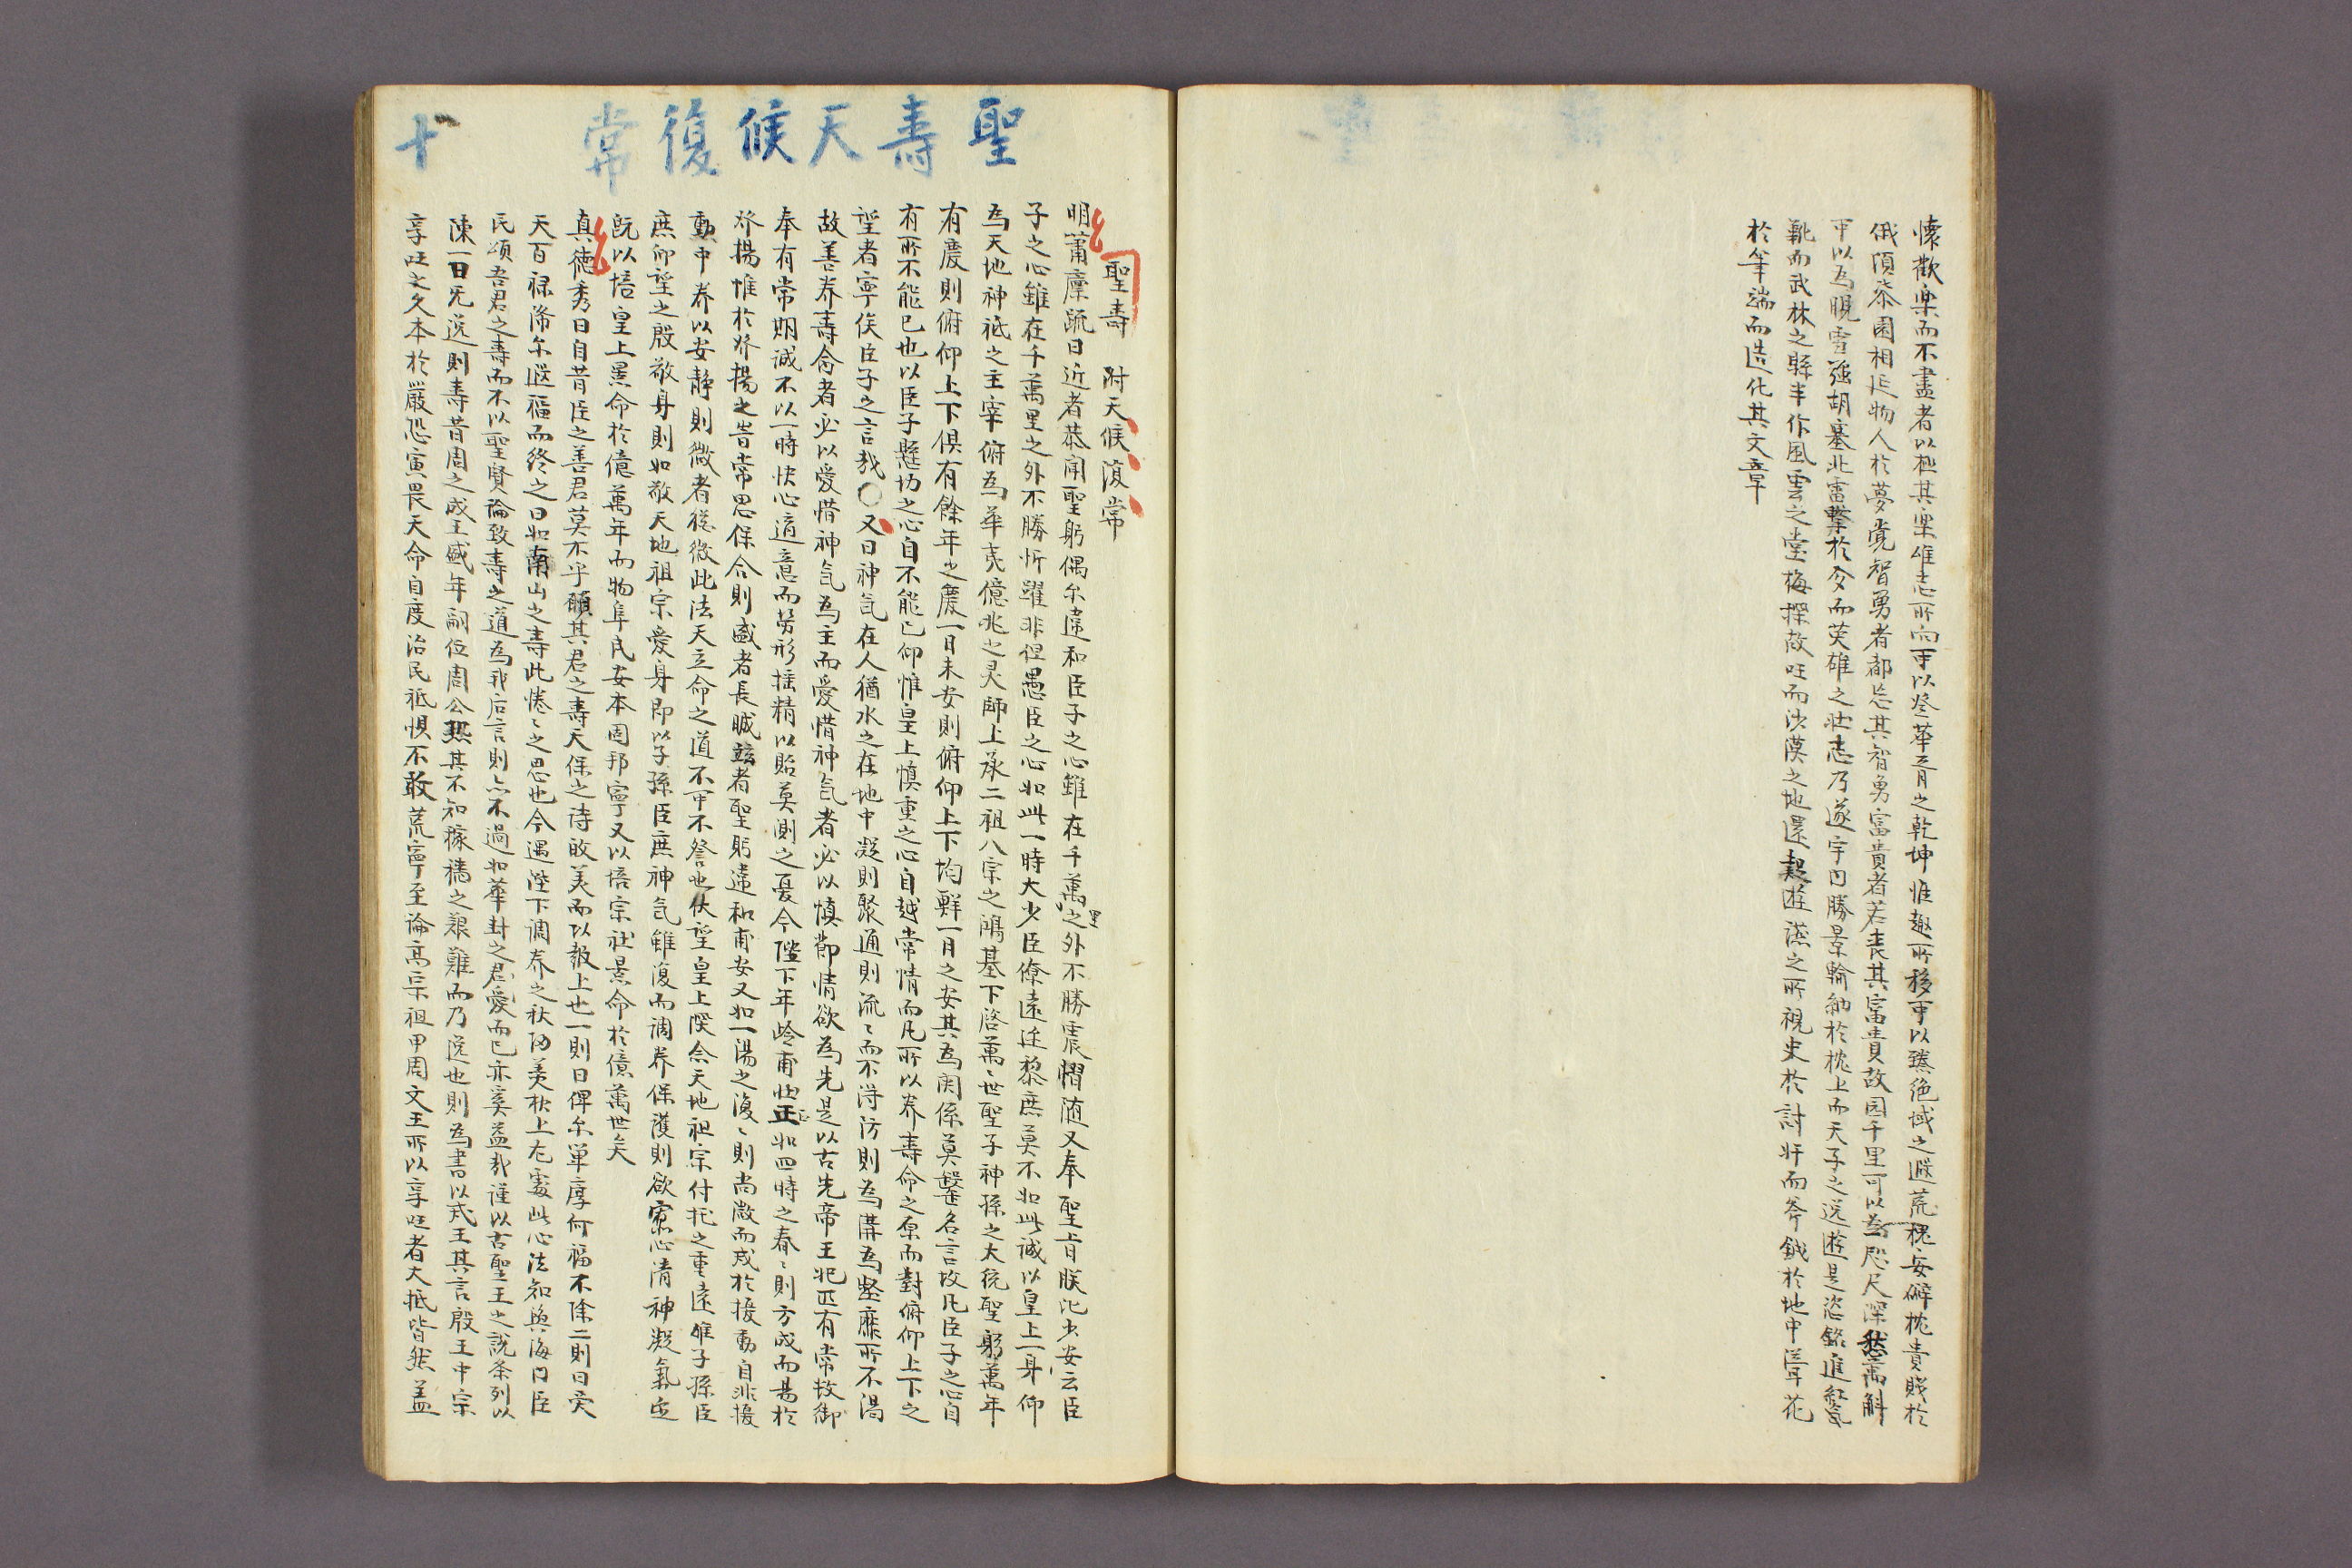 懷歡樂而不盡者以極其樂雄志所向可以登華胥之乾坤惟趣所移可以臻絶域之遐荒槐安僻枕貴賤於
俄頃漆園相延物人於夢覺智勇者都忘其智勇富貴者若喪其富貴故園千里可以為咫尺深愁萬斛
可以為睍雪强胡塞北富擊於多而英雄之壯志乃遂宇內勝景輸納於枕上而天子之遠遊是恣銘進紅氣
靴而武林之縣半作風雲之堂梅探故旺而沙漠之地還起遊讌之所視史於討奸而斧鉞於地中聳花
於筆端而造化其文章
聖壽天候復常
十
聖壽 附天候復常
明蕭廩疏曰近者恭聞聖躬偶尒違和臣子之心雖在千萬里之外不勝震慴随又奉聖旨朕已少安云臣
子之心雖在千萬里之外不勝忻躍非徒愚臣之心如此一時大少臣僚遠迁黎庶莫不如此誠以皇上一身仰
為天地神祇之主宰俯為華夷億兆之君師上承二祖八宗之鴻基下啓萬〻世聖子神孫之大統聖躬萬年
有慶則俯仰上下俱有餘年之慶一日未安則俯仰上下均鮮一月之安其為関係莫罄名言故凡臣子之心自
有所不能已也以臣子懸切之心自不能已仰惟皇上慎重之心自越常情而凡所以养壽命之原而對俯仰上下之
望者寧俟臣子之言哉〇又曰神氣在人猶水之在地中凝則聚通則流〻而不得防則為溝為壑靡所不濁
故善养壽命者必以愛惜神氣為主而愛惜神氣者必以慎節情欲為先是以古先帝王妃匹有常故御
奉有常期誠不以一時快心適意而勞形搖精以貽莫測之憂今陛下年岭甫壯正如四時之春〻則方成而易於
發揚惟於發揚之旹常思保合則盛者長臧玆者聖躬違和甫安又如一湯之復〻則尚微而戒於援動自非援
動中养以安静則微者後微此法天立命之道不可不詧也伏望皇上俯念天地祖宗付托之重遠惟子孫臣
庶仰望之殷敬身則如敬天地祖宗愛身即以子孫臣庶神氣雖復而調养保護則欲寡心清神凝氣定
旣以培皇上景命於億萬年而物阜民安本固邦寧又以培宗社景命於億萬世矣
真德秀曰自昔臣之善君莫不乎願其君之壽天保之诗敀美而以報上也一則曰俾尒單厚何福不除二則曰受
天百禄降尒遐福而終之曰如南山之壽此惓〻之思也今遇陛下調养之秋 美枝上尤處此心法知與海內臣
民頌吾君之壽而不以聖賢論致壽之道為我后言則亦不過如華封之君愛而已亦奚益哉謹以古聖王之說条列以
陳一曰无逸則壽昔周之成王盛年嗣位周公熟其不知稼穡之艱難而乃逸也則為書以戒王其言殷王中宗
享旺之久本於嚴恐寅畏天命自度治民祗惧不敢荒寧至論高宗祖甲周文王所以享旺者大抵皆然盖